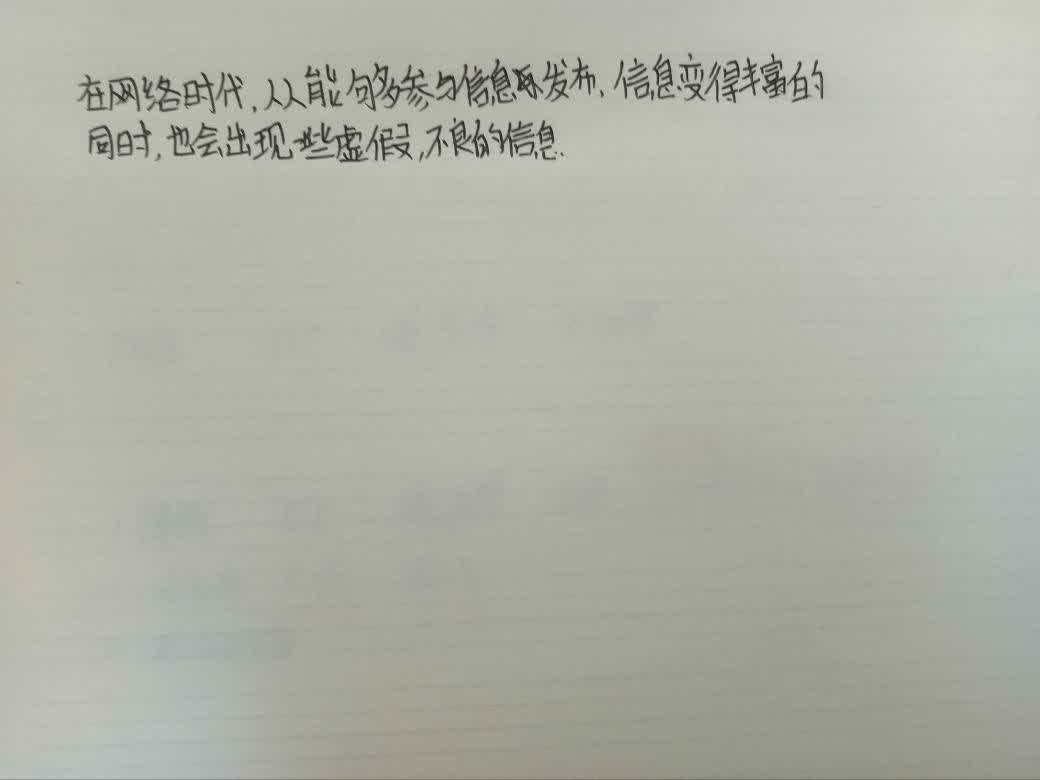 在网络时代,人人能够参与信息发布,信息变得丰富的
同时,也会出现一些虚假,不良的信息.